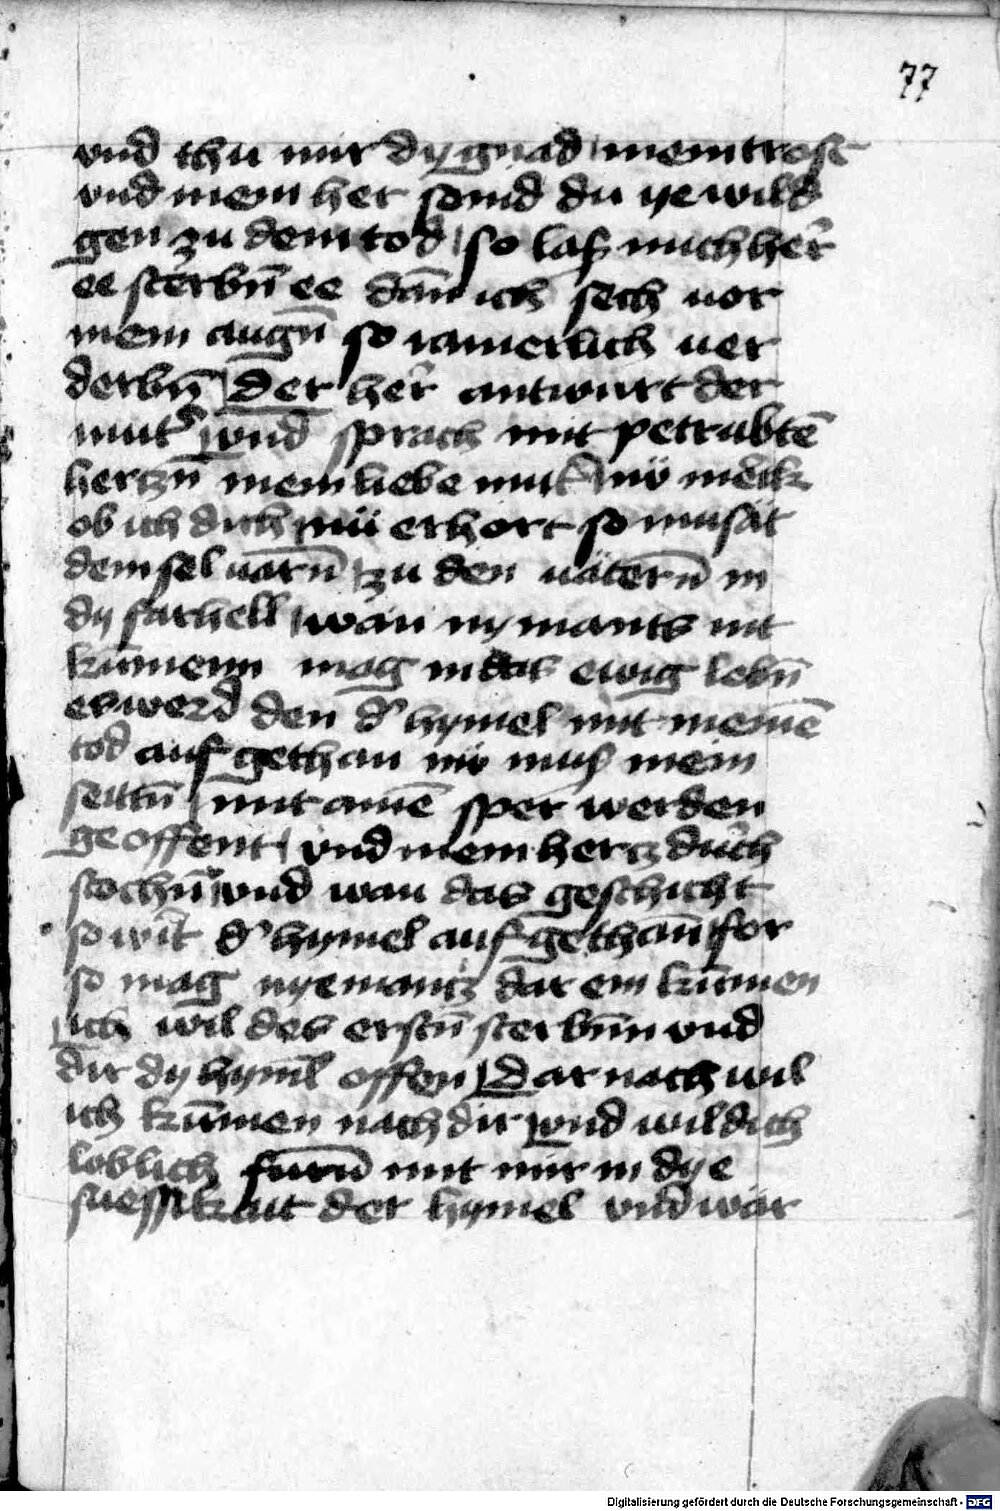 77
vnd thu mir dy gnad mein trost
vnd mein her seind du ye wild
gen zu dem tod so laß mich her̄
ee sterbn̄ ee dan̄ ich sech vor
mein augn̄ so iamerlich ver
derbn̄ Der her̄ antwurt der
mut̾ vnd sprach mit petrubtē
hertzn̄ mein liebe mut̾ nu merck
ob ich dich nu erhort so must
dein sel varn̄ zu den vätern̄ in
dy farhell wan nymants nit
kūmenn mag in das ewig lebn̄
es werd den d̾ hymel mit meinē
tod auf gethan nu muß mein
seittn̄ mit ainē sper werden
geoffent vnd mein hertz durch
stochn̄ vnd wan das geschicht
so wirt d̾ hymel auf gethan̄ for
so mag nyemantz dar ein kūmen
ich wil des erstn̄ sterbnn vnd
dir dy hyml̄ offen Dar nach wil
ich kūmen nach dir vnd wil dich
loblich furn̄ mit mir in dye
suessikait der hymel vnd war
Digitalisierung gefördert durch die Deutsche Forschungsgemeinschaft - DFG